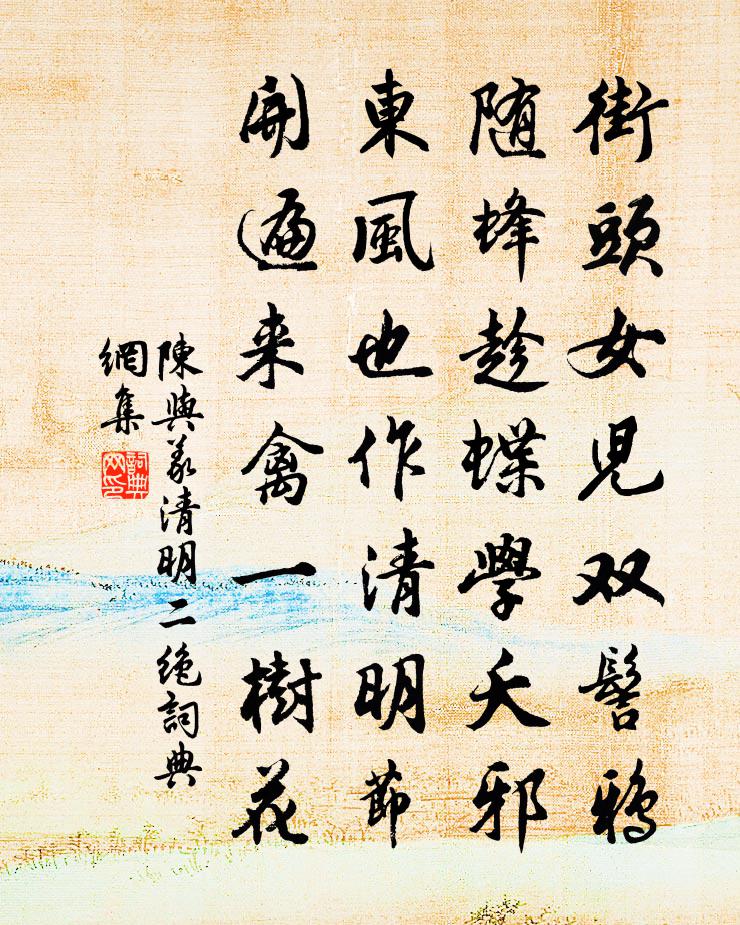 街頭女児双髻鴉
随蜂趁蝶學夭邪
東風也作清明節
開遍来禽一樹花
陳與義清明二絶詞典
網集
詞典網印